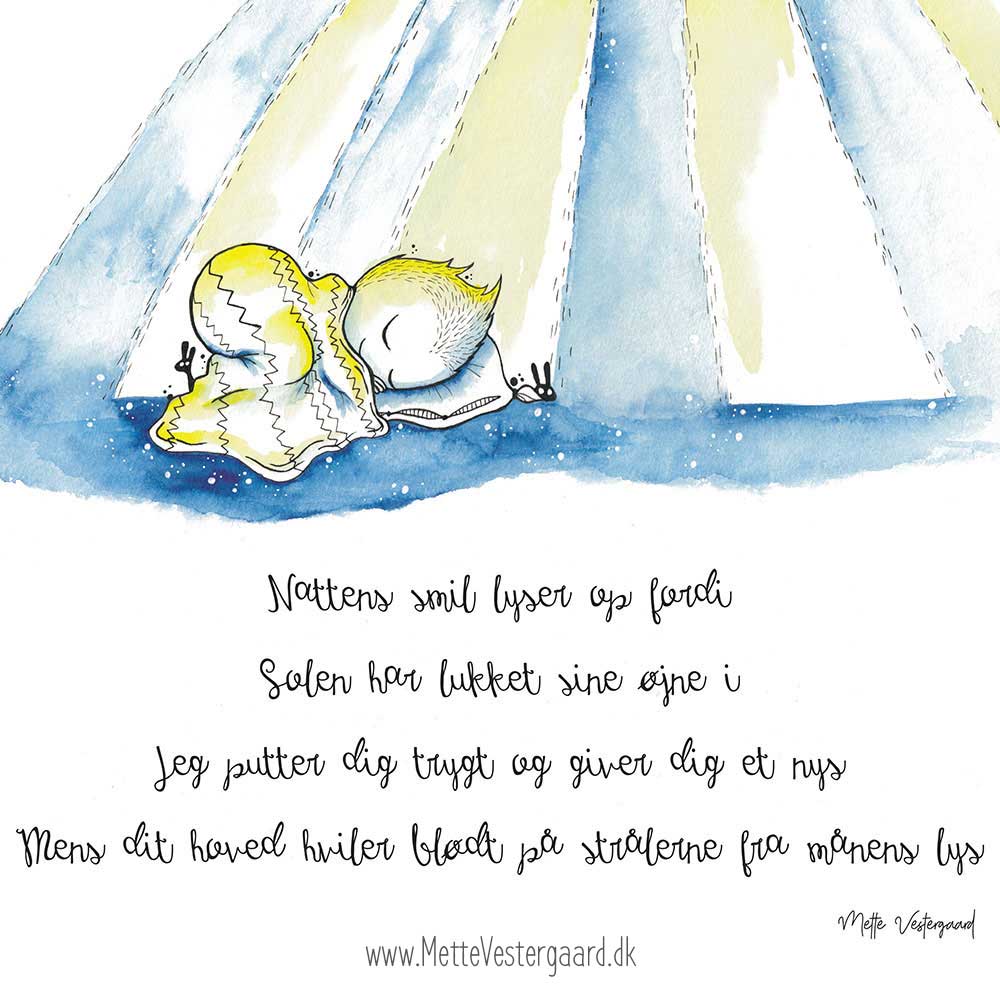 Nattens smil lyser op fordi
Solen har lukket sine øjne i
Jeg putter dig trygt og giver dig et nys
Mens dit hoved hviler blødt på strålerne fra månens lys
Mette Vestergaard
www.MetteVestergaard.dk